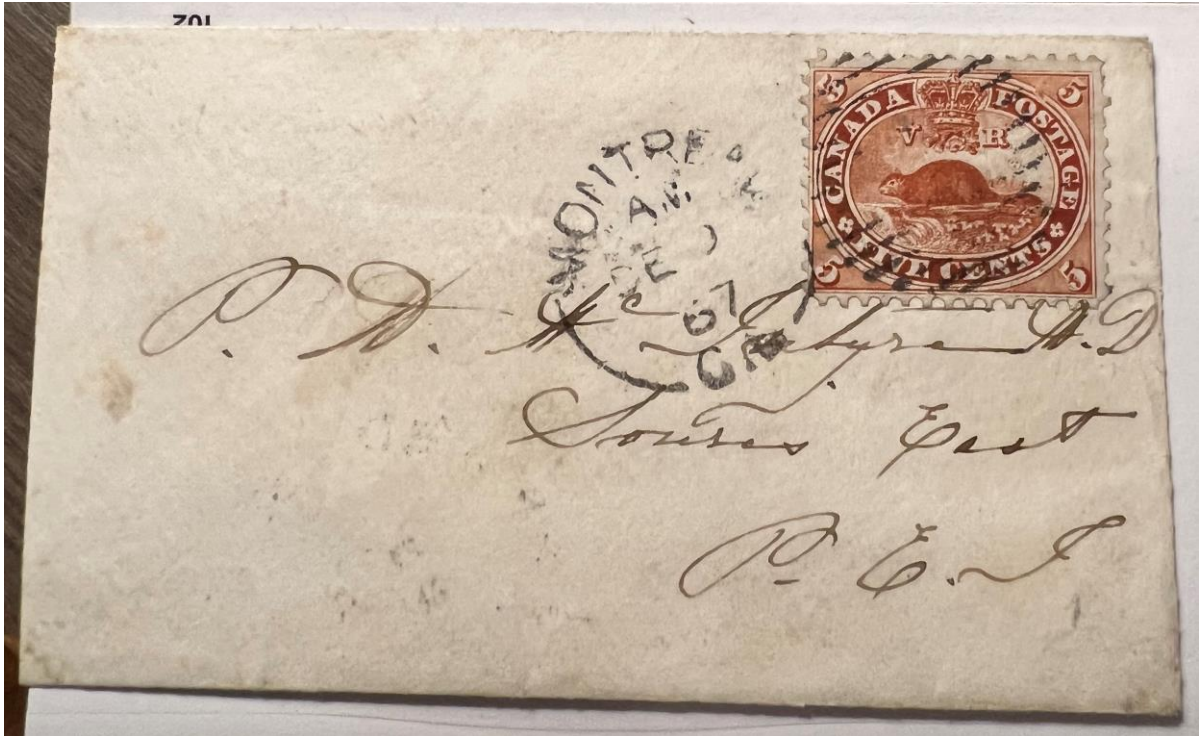 5 CANADA POSTAGE 5
V R
5 FIVE CENTS 5
MONTREAL
AM
FE
67
P. D. Mc Intyre M.D
Souris East
P. E. I